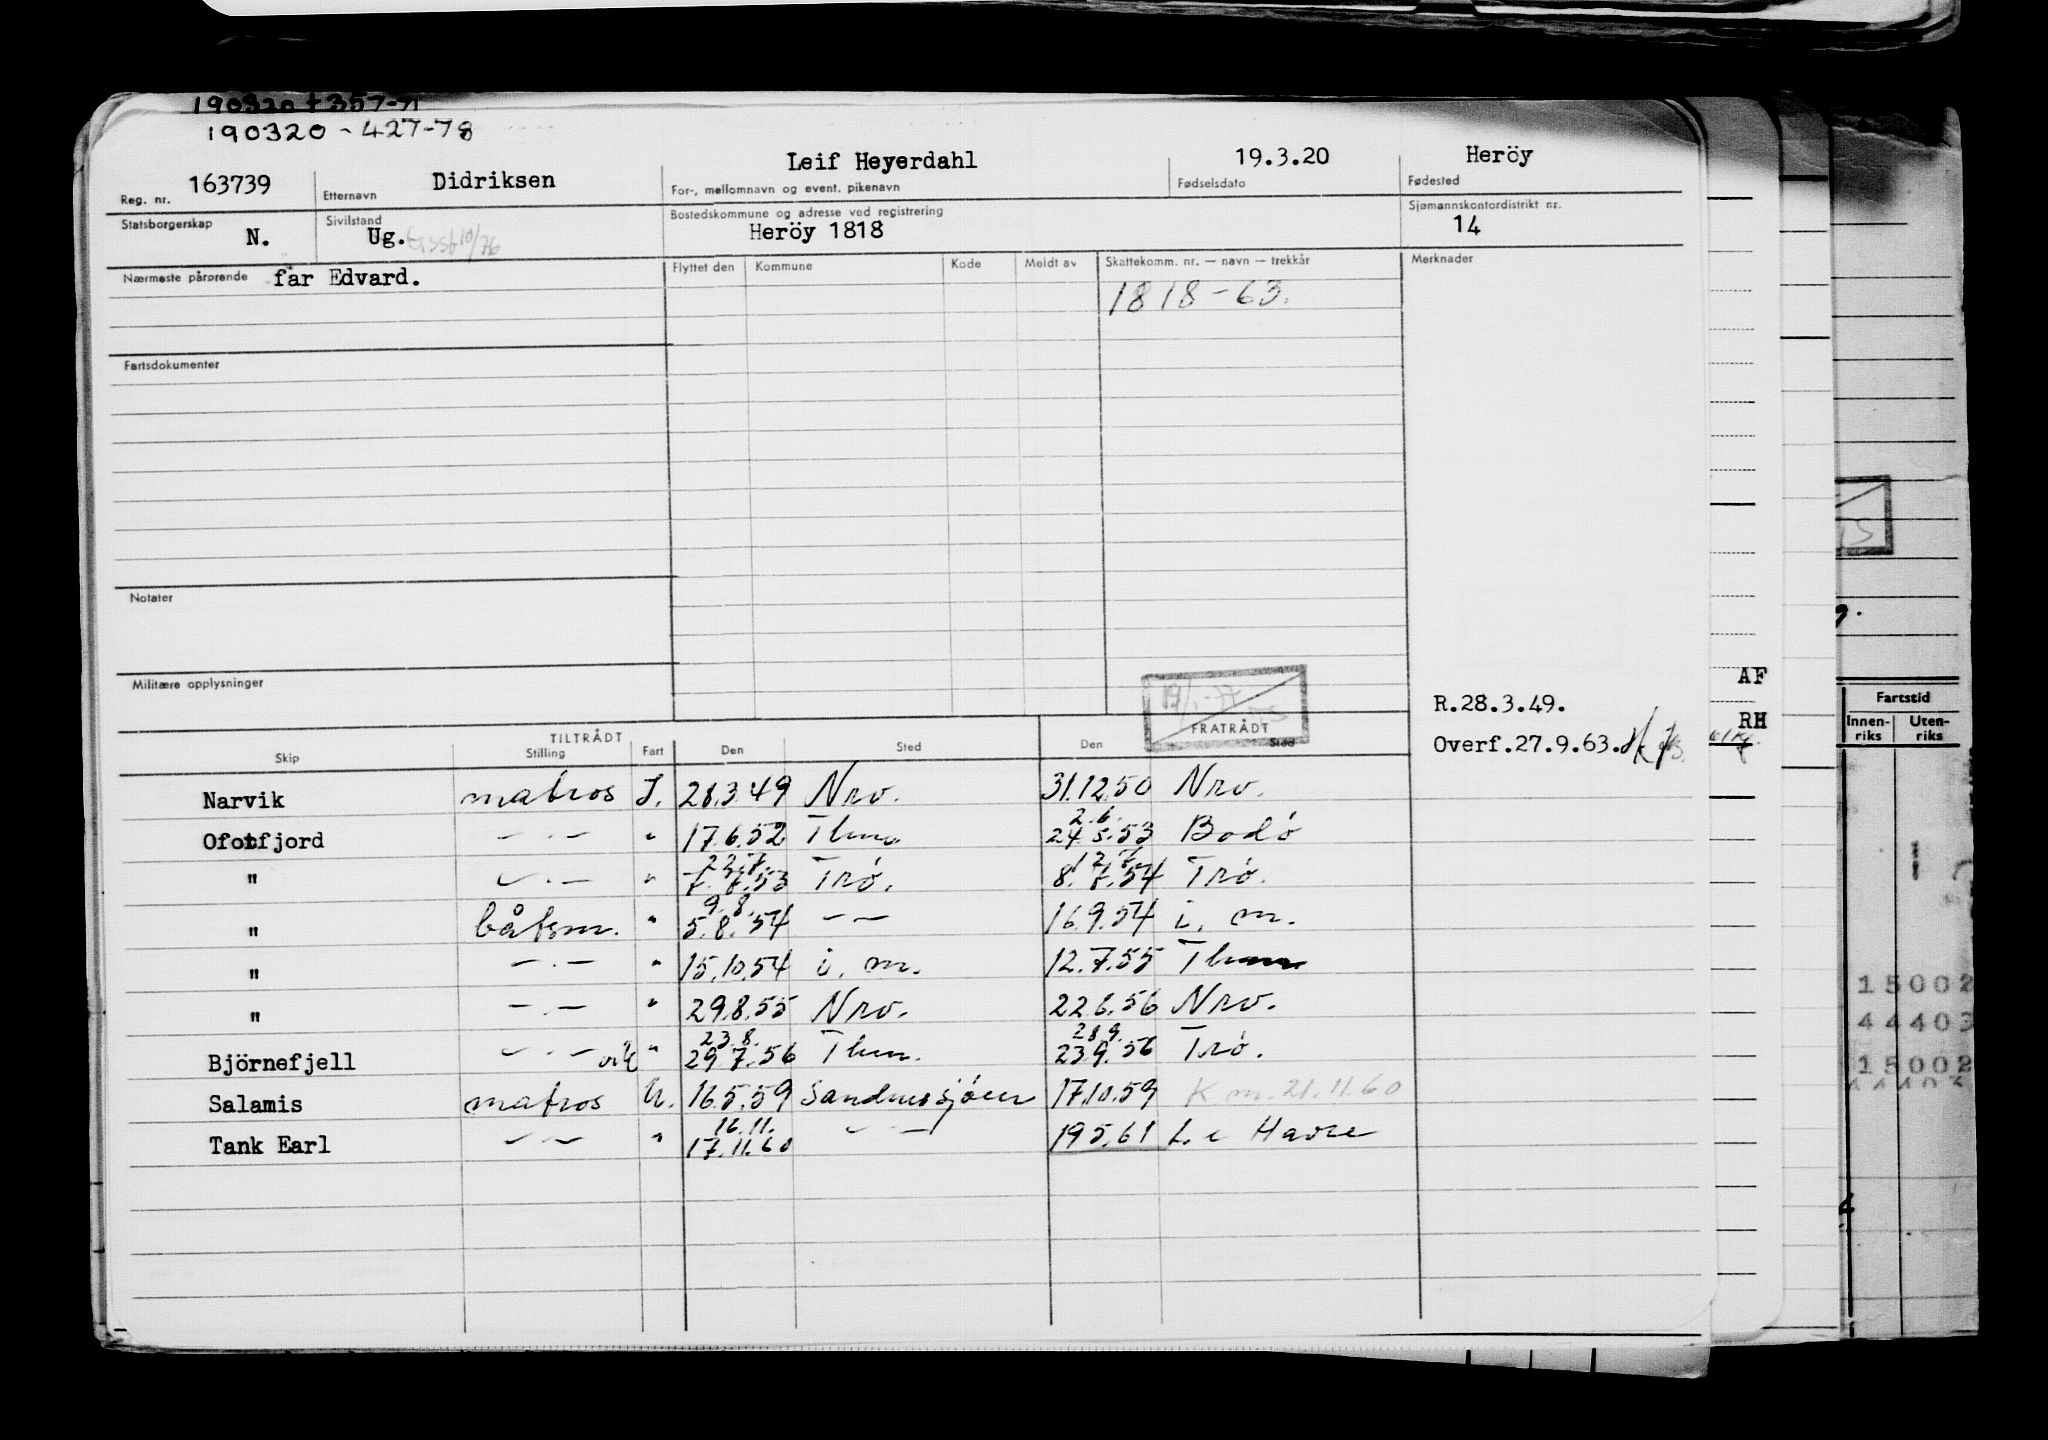 190320 + 357-71
190320 - 427-78
Reg. nr. 163739 Etternavn Didriksen For-, mellomnavn og event. pikenavn Leif Heyerdahl Fødselsdato 19.3.20 Fødested Heröy
Statsborgerskap N. Sivilstand Ug. Bostedskommune og adresse ved registrering Heröy 1818 Sjømannskontordistrikt nr. 14
Nærmeste pårørende far Edvard. Flyttet den Kommune Kode Meldt av Skattekomm. nr. — navn — trekkår Merknader
1818-63.
Fartsdokumenter
Notater
Militære opplysninger
AF
R.28.3.49.
RH
Overf.27.9.63.
Fartstid
Innen-riks Uten-riks
TILTRÅDT FRATRÅDT
Skip Stilling Fart Den Sted Den Sted
Narvik matros I. 28.3.49 Nrv. 31.12.50 Nrv.
2.6.
Ofotfjord — . — " 17.6.52 Thm 24.5.53 Bodö
22.7. 12.7.
" — . — " 7.7.53 Trö. 8.7.54 Trö.
9.8.
" båtsm. " 5.8.54 — — 16.9.54 i. m.
" — . — " 15.10.54 i. m. 12.7.55 Thm
" — . — " 29.8.55 Nrv. 22.6.56 Nrv.
23.8. 28.9.
Björnefjell — . — vik " 29.7.56 Thm. 23.9.56 Trö.
Salamis matros U. 16.5.59 Sandnessjöen 17.10.59 K m. 21.11.60
16.11.
Tank Earl — . — " 17.11.60 — . — 19.5.61 Le Havre
15002
44403
15002